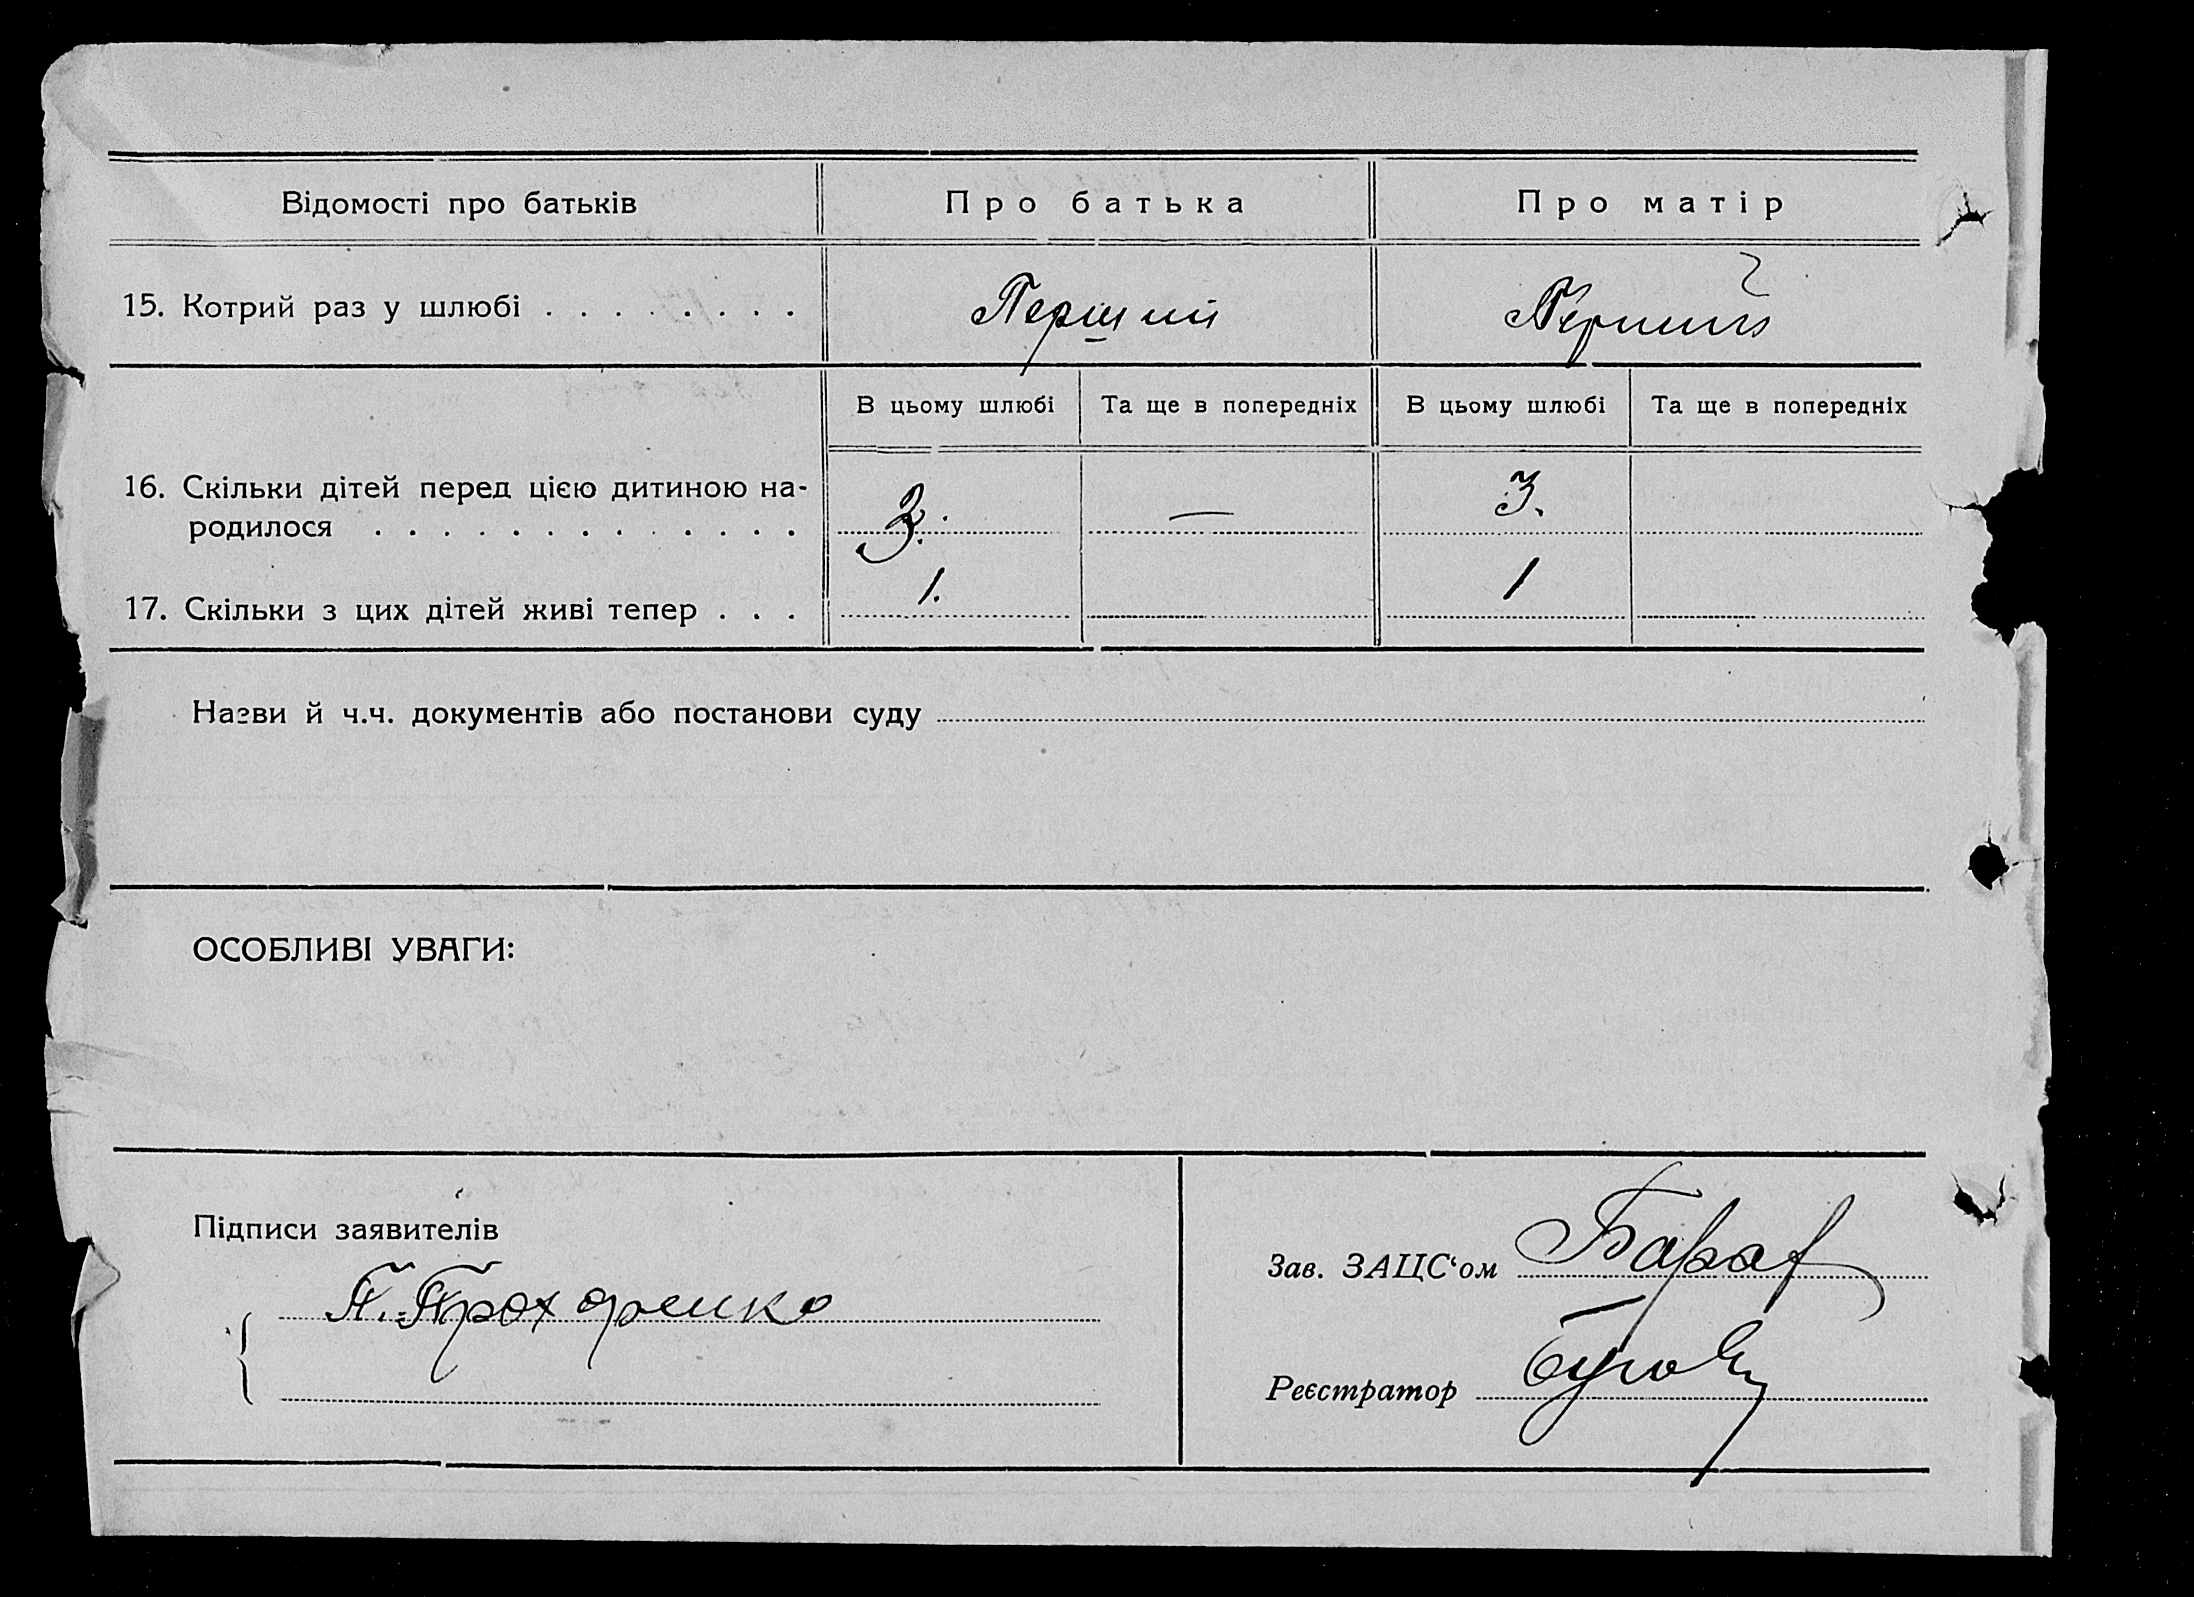 Відомості про батьків Про батька Про матір
15. Котрий раз у шлюбі . . . . . . . . Перший Перший
В цьому шлюбі Та ще в попередніх В цьому шлюбі Та ще в попередніх
16. Скільки дітей перед цією дитиною на-
родилося . . . . . . . . . . . . . 3. — 3.
17. Скільки з цих дітей живі тепер . . . 1. 1
Назви й ч.ч. документів або постанови суду
ОСОБЛИВІ УВАГИ:
Підписи заявителів
П. Прохоренко
Зав. ЗАЦС‘ом
Реєстратор